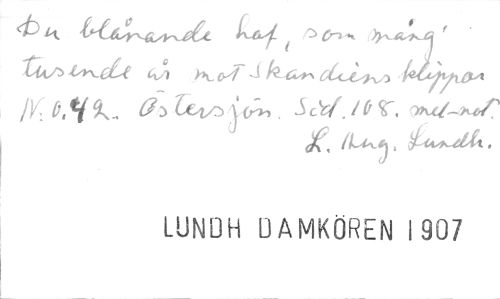 Du blånande haf, som mång'
tusende år mot Skandiens klippor
N:o. 42. Östersjön. Sid. 108. med not.
L. Aug. Lundh.
LUNDH DAMKÖREN 1907